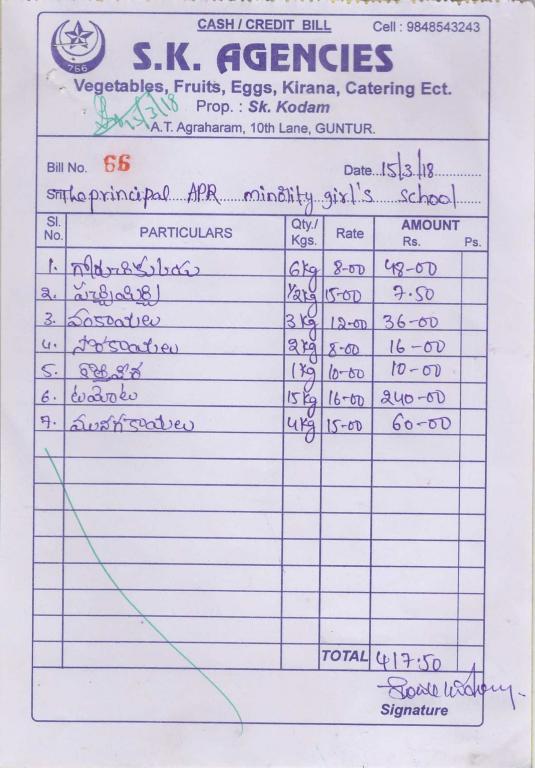 CASH / CREDIT BILL
Cell : 9848543243
786
S.K. AGENCIES
Vegetables, Fruits, Eggs, Kirana, Catering Ect.
Prop. : Sk. Kodam
15/3/18
A.T. Agraharam, 10th Lane, GUNTUR.
Bill No. 66
Date 15/3/18
The principal APR minority girl's school
Sl. No. PARTICULARS Qty./ Kgs. Rate AMOUNT Rs. Ps.
1. గోరుచిక్కుడు 6kg 8-00 48-00
2. పచ్చిమిర్చి 1/2kg 15-00 7.50
3. వంకాయలు 3kg 12-00 36-00
4. సొరకాయలు 2kg 8-00 16-00
5. కొత్తిమీర 1kg 10-00 10-00
6. టమోటా 15kg 16-00 240-00
7. మునగకాయలు 4kg 15-00 60-00
TOTAL 417.50
Signature